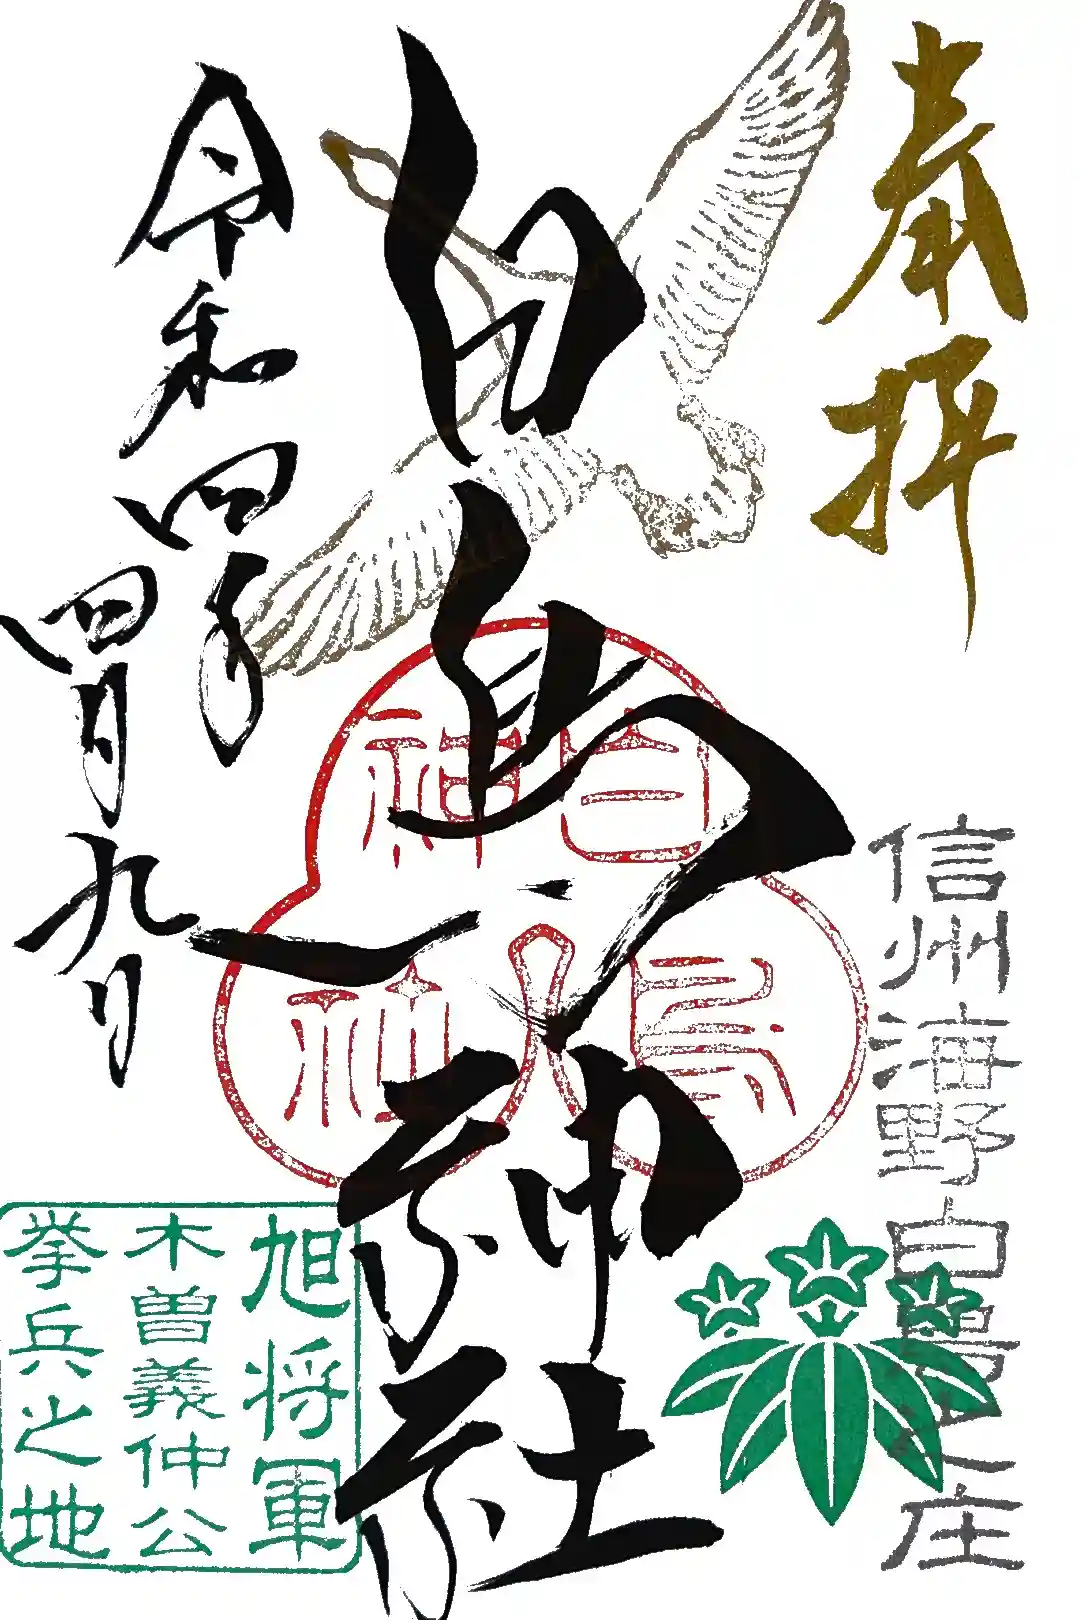 奉拝
信州海野白鳥之庄
白鳥神社
白鳥
神社
令和四年
四月九日
旭将軍
木曽義仲公
挙兵之地